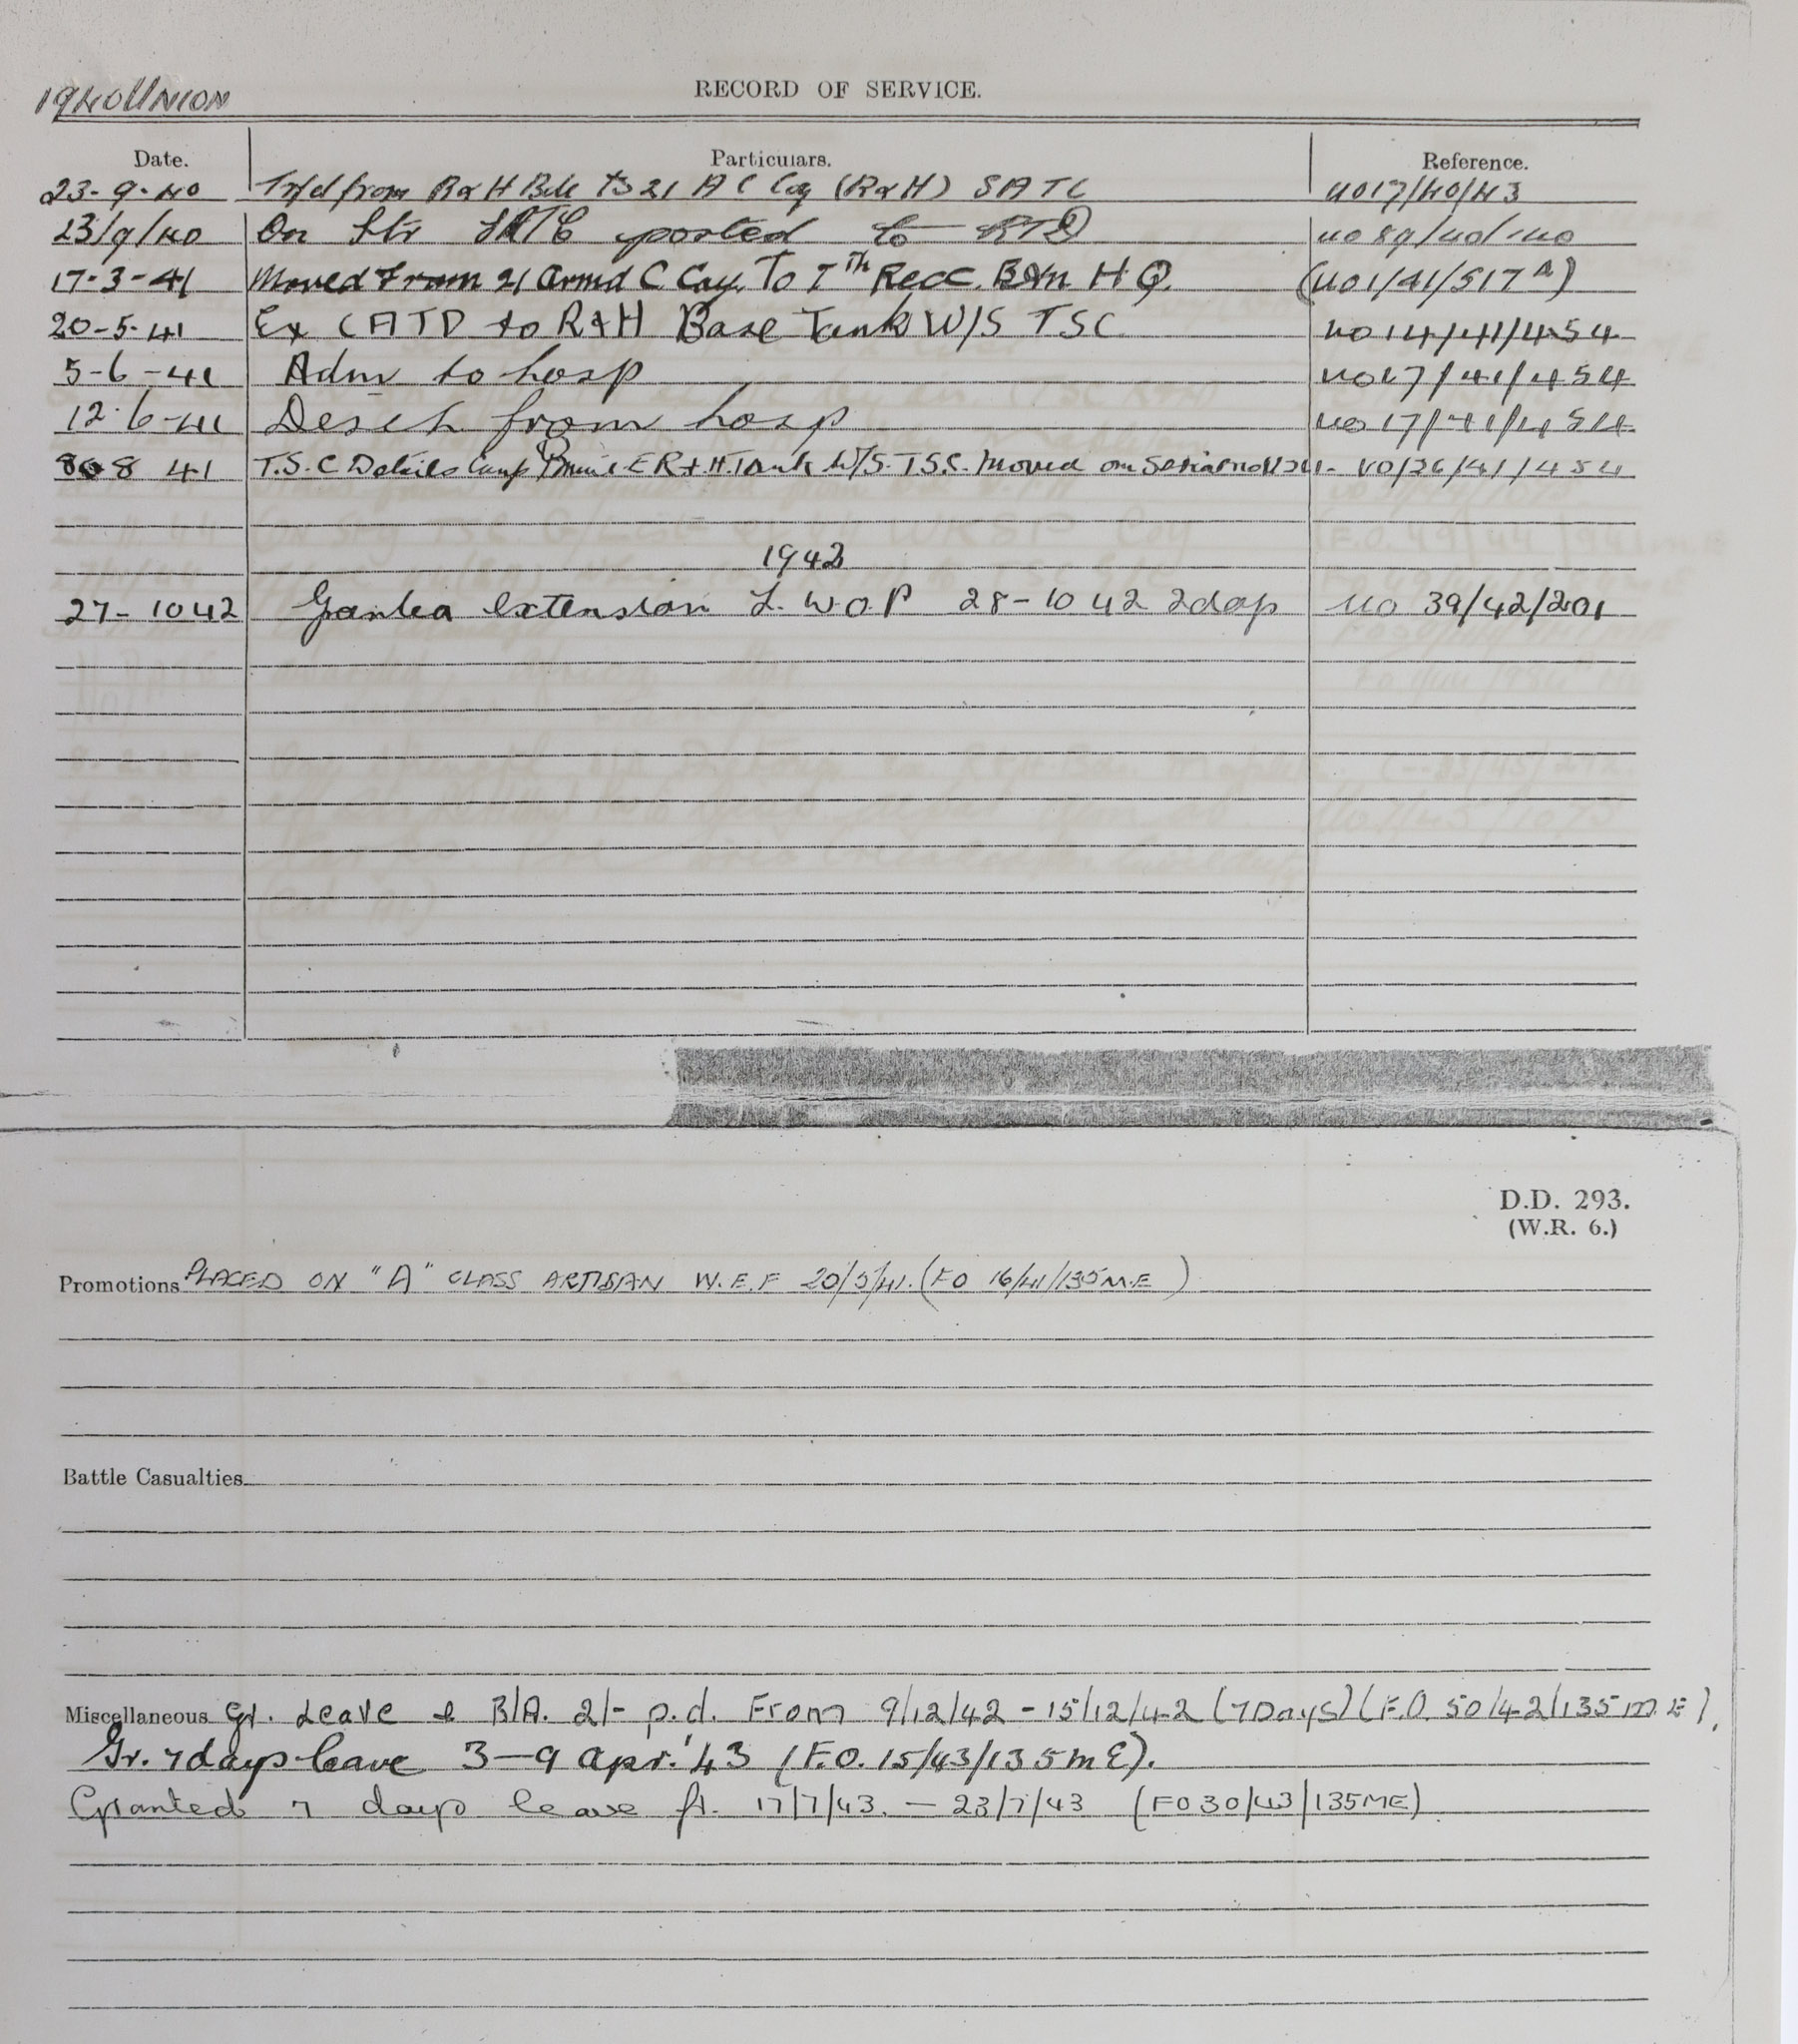 1940 UNION
RECORD OF SERVICE.
Date. Particulars. Reference.
23-9-40 Tsfd from R&H Bde to 21 A C Coy (R&H) SATC UO17/40/43
23/9/40 On Str SATC posted to UO 89/40/
17-3-41 Moved From 21 Armd C Coy. To 7th Recc. B2n H Q. (UO1/41/517A)
20-5-41 Ex CATD to R+H Base Tank W/S TSC UO 14/41/454
5-6-41 Adm to hosp UO17/41/454
12-6-41 Desch from hosp UO 17/41/454
8 41 T.S.C Details Camp E R+H. Tank W/S. T.S.C. Moved on Serial no UO/26/41/454
1942
27-10 42 extension L.W.O.P 28-10 42 2days UO 39/42/201
D.D. 293.
(W.R. 6.)
Promotions PLACED ON "A" CLASS ARTISAN W.E.F 20/5/41. (FO 16/41/135M.E)
Battle Casualties
Miscellaneous Gr. Leave & R/A. 2/- p.d. From 9/12/42 - 15/12/42 (7 Days) (F.O. 50/42/135 M.E).
Gr. 7 days leave 3-9 Apr. '43 (F.O. 15/43/135 M E).
Granted 7 days leave fr. 17/7/43. - 23/7/43 (FO 30/43/135ME)